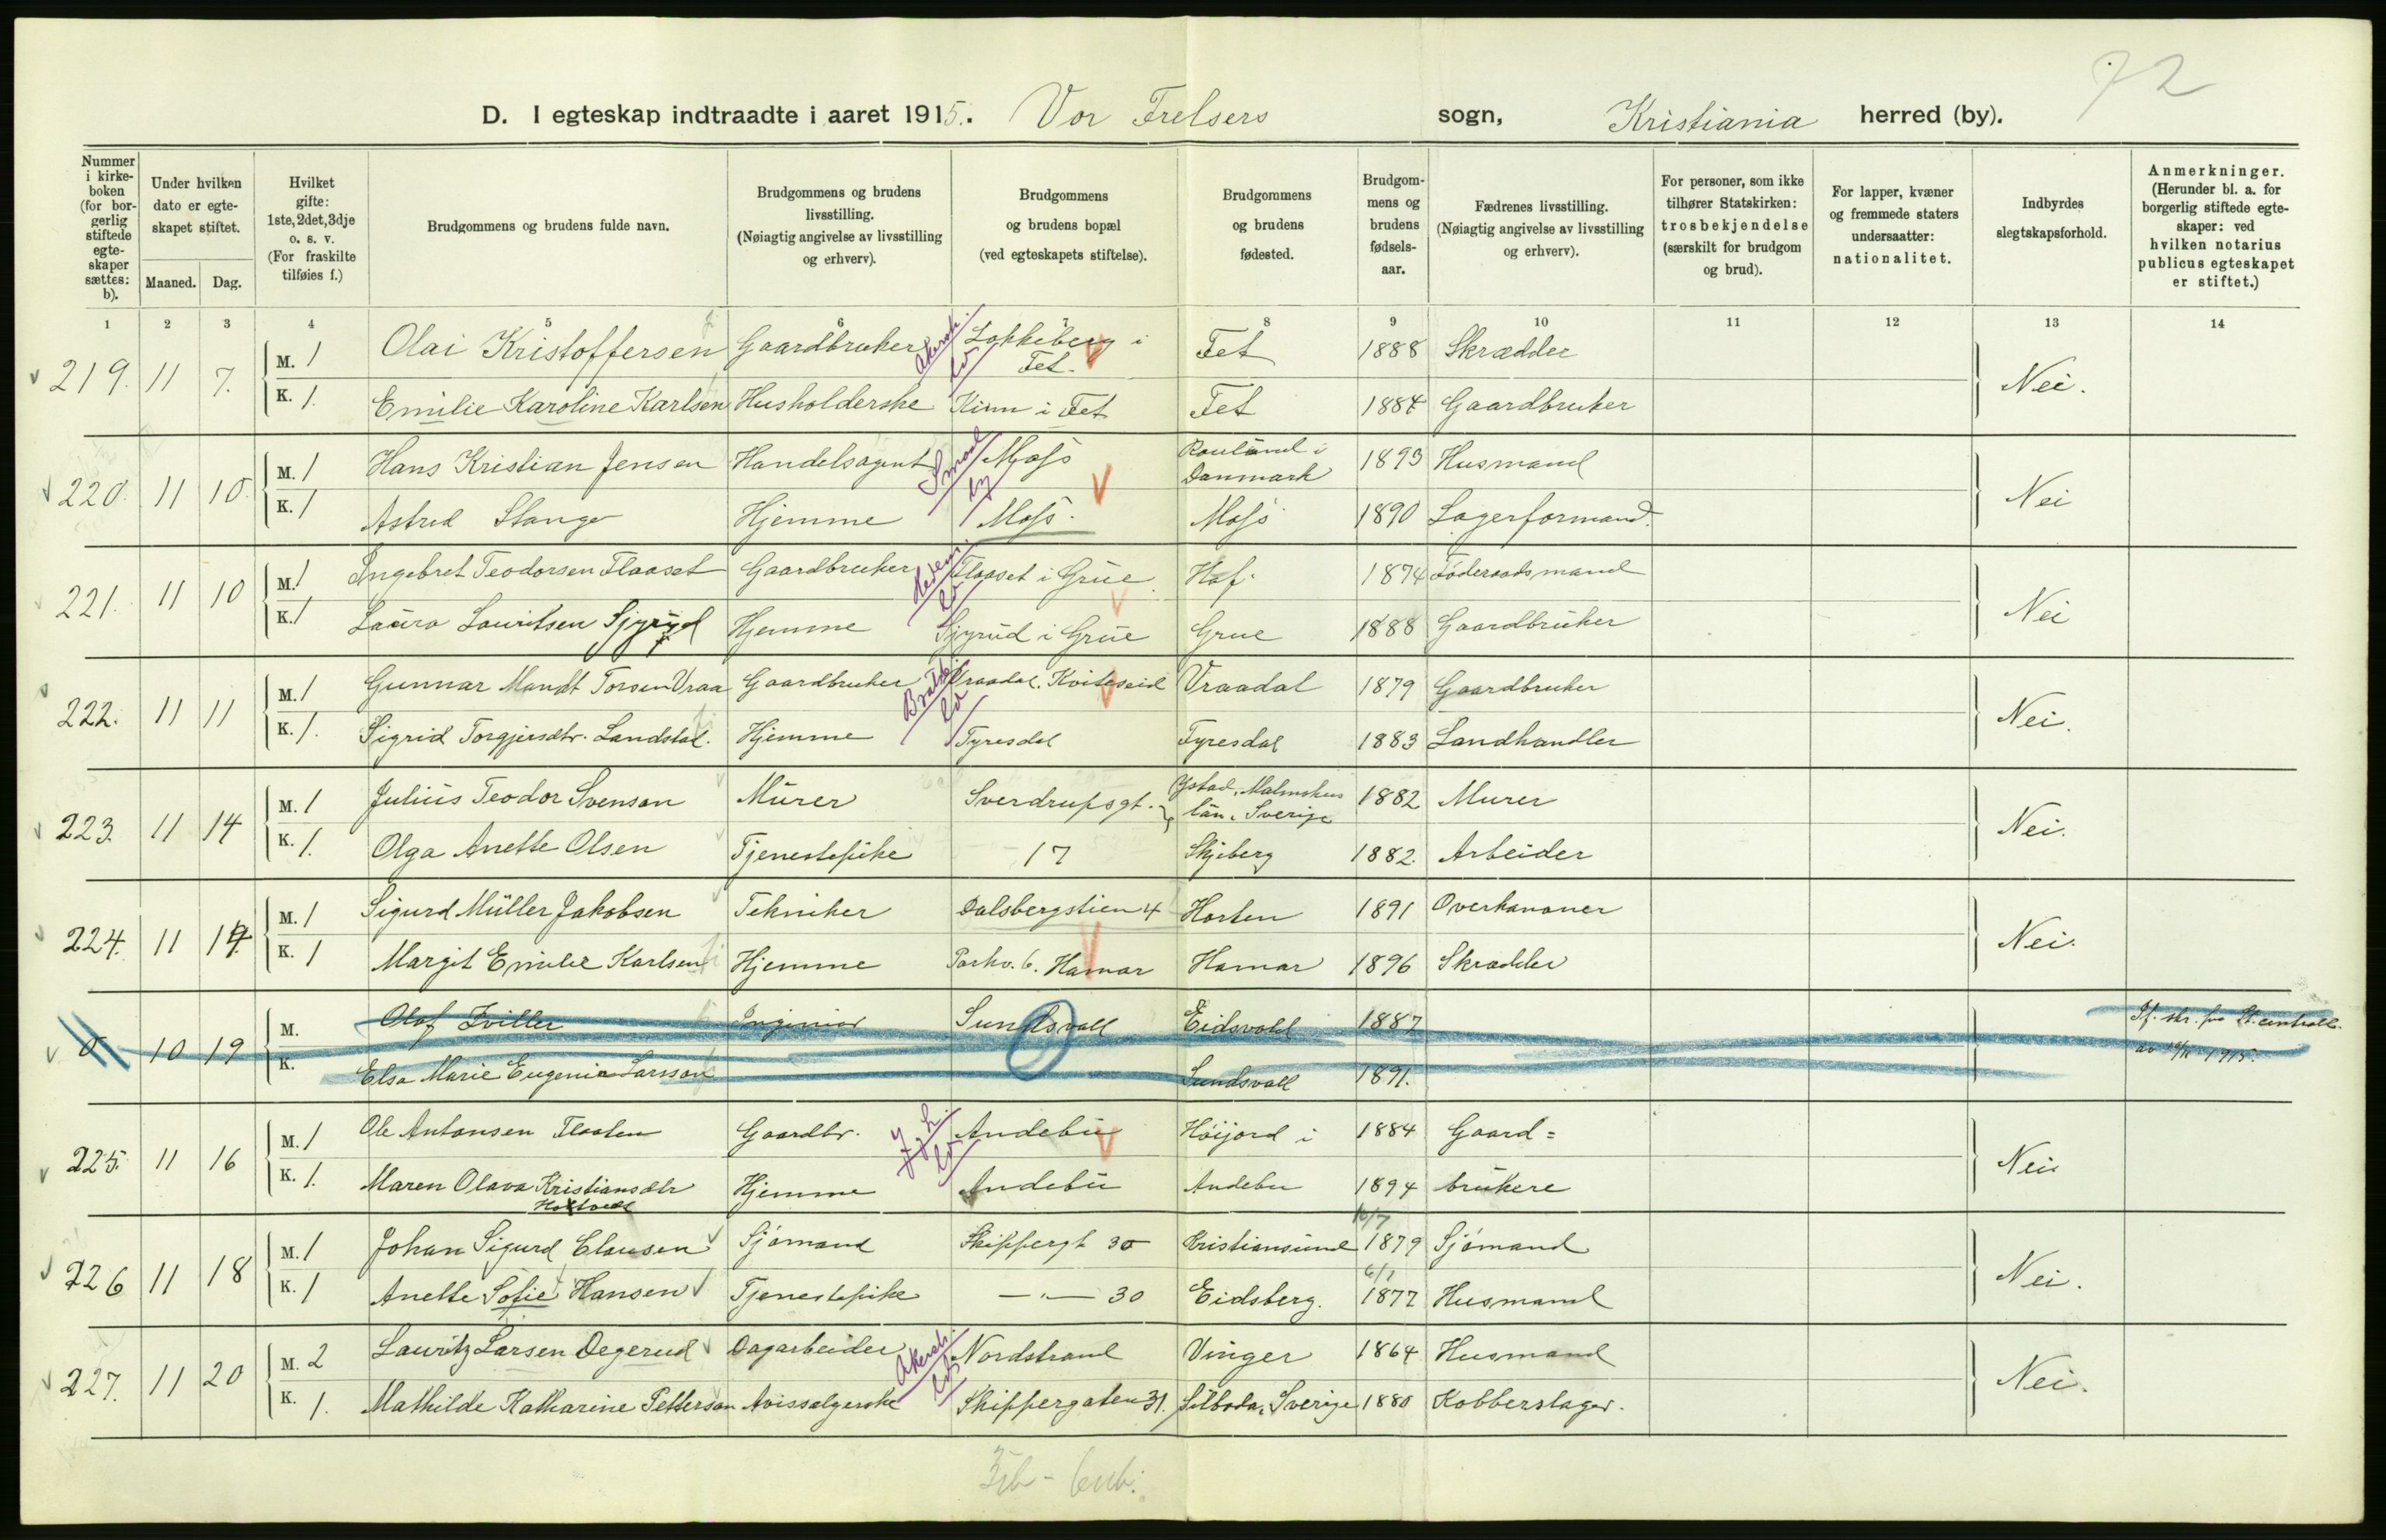 72
D. I egteskap indtraadte i aaret 1915. Vor Frelsers sogn, Kristiania herred (by).
Nummer i kirkeboken (for borgerlig stiftede egteskaper sættes: b).
Under hvilken dato er egteskapet stiftet.
Maaned. Dag.
Hvilket gifte: 1ste, 2det, 3dje o. s. v. (For fraskilte tilføies f.)
Brudgommens og brudens fulde navn.
Brudgommens og brudens livsstilling. (Nøiagtig angivelse av livsstilling og erhverv).
Brudgommens og brudens bopæl (ved egteskapets stiftelse).
Brudgommens og brudens fødested.
Brudgommens og brudens fødselsaar.
Fædrenes livsstilling. (Nøiagtig angivelse av livsstilling og erhverv).
For personer, som ikke tilhører Statskirken: trosbekjendelse (særskilt for brudgom og brud).
For lapper, kvæner og fremmede staters undersaatter: nationalitet.
Indbyrdes slegtskapsforhold.
Anmerkninger. (Herunder bl. a. for borgerlig stiftede egteskaper: ved hvilken notarius publicus egteskapet er stiftet.)
1 2 3 4 5 6 7 8 9 10 11 12 13 14
219. 11 7. M. 1 Olai Kristoffersen Gaardbruker Akersh. Lokkeberg i Fet. Fet 1888 Skrædder Nei.
K. 1. Emilie Karoline Karlsen Husholderske Kinn i Fet Fet 1884 Gaardbruker
220. 11 10. M. 1 Hans Kristian Jensen Handelsagent Smaal by Moss Danmark 1893 Husmand Nei
K. 1 Astrid Stange Hjemme Moss. Moss 1890 Lagerformand.
221. 11 10 M. 1 Ingebret Teodorsen Flaaset Gaardbruker Hedem. Flaaset i Grue Hof. 1874 Föderaadsmand Nei
K. 1 Laura Lauritsen Sjyryd Hjemme Sjyrud i Grue Grue 1888 Gaardbruker
222. 11 11 M. 1 Gunnar Mandt Torsen Vraa Gaardbruker Bratsb. Vraadal. Kviteseid Vraadal 1879 Gaardbruker Nei.
K. 1. Sigrid Torgjersdtr. Landstad. Hjemme Tyresdal Tyresdal 1883 Landhandler
223. 11 14 M. 1 Julius Teodor Svenson Murer Sverdrupsgt. Ystad, Malmøhus län. Sverige 1882 Murer Nei.
K. 1. Olga Anette Olsen Tjenestepike 17 Skjeberg 1882. Arbeider
224. 11 14. M. 1 Sigurd Müller Jakobsen Tekniker Dalsbergstien 4 Horten 1891 Overkanoner Nei.
K. 1 Margit Emilie Karlsen Hjemme Parkv. 6. Hamar Hamar 1896 Skrædder
0 10 19 M. Olaf Zviller Ingeniør Sundsvall Eidsvold 1887
K. Elsa Marie Eugenia Larsson Sundsvall 1891.
225. 11 16 M. 1 Ole Antonsen Flaaten Gaardbr. Andebu Höijord i 1884 Gaard= Nei
K. 1. Maren Olava Kristiansdtr Hjemme Andebu Andebu 1894 brukere
226 11 18 M. 1 Johan Sigurd Clausen Sjömand Skippergt 30 Kristiansund 1879 Sjömand Nei.
K. 1 Anette Sofie Hansen Tjenestepike —"— 30 Eidsberg. 6/1 1877 Husmand
227. 11 20 M. 2 Lauritz Larsen Degerud Dagarbeider Akersh. Nordstrand Vinger 1864 Husmand Nei.
K. 1. Mathilde Katharine Petterson Avissælgerske Skippergaten 31. Silboda, Sverige 1880 Kobberslager.